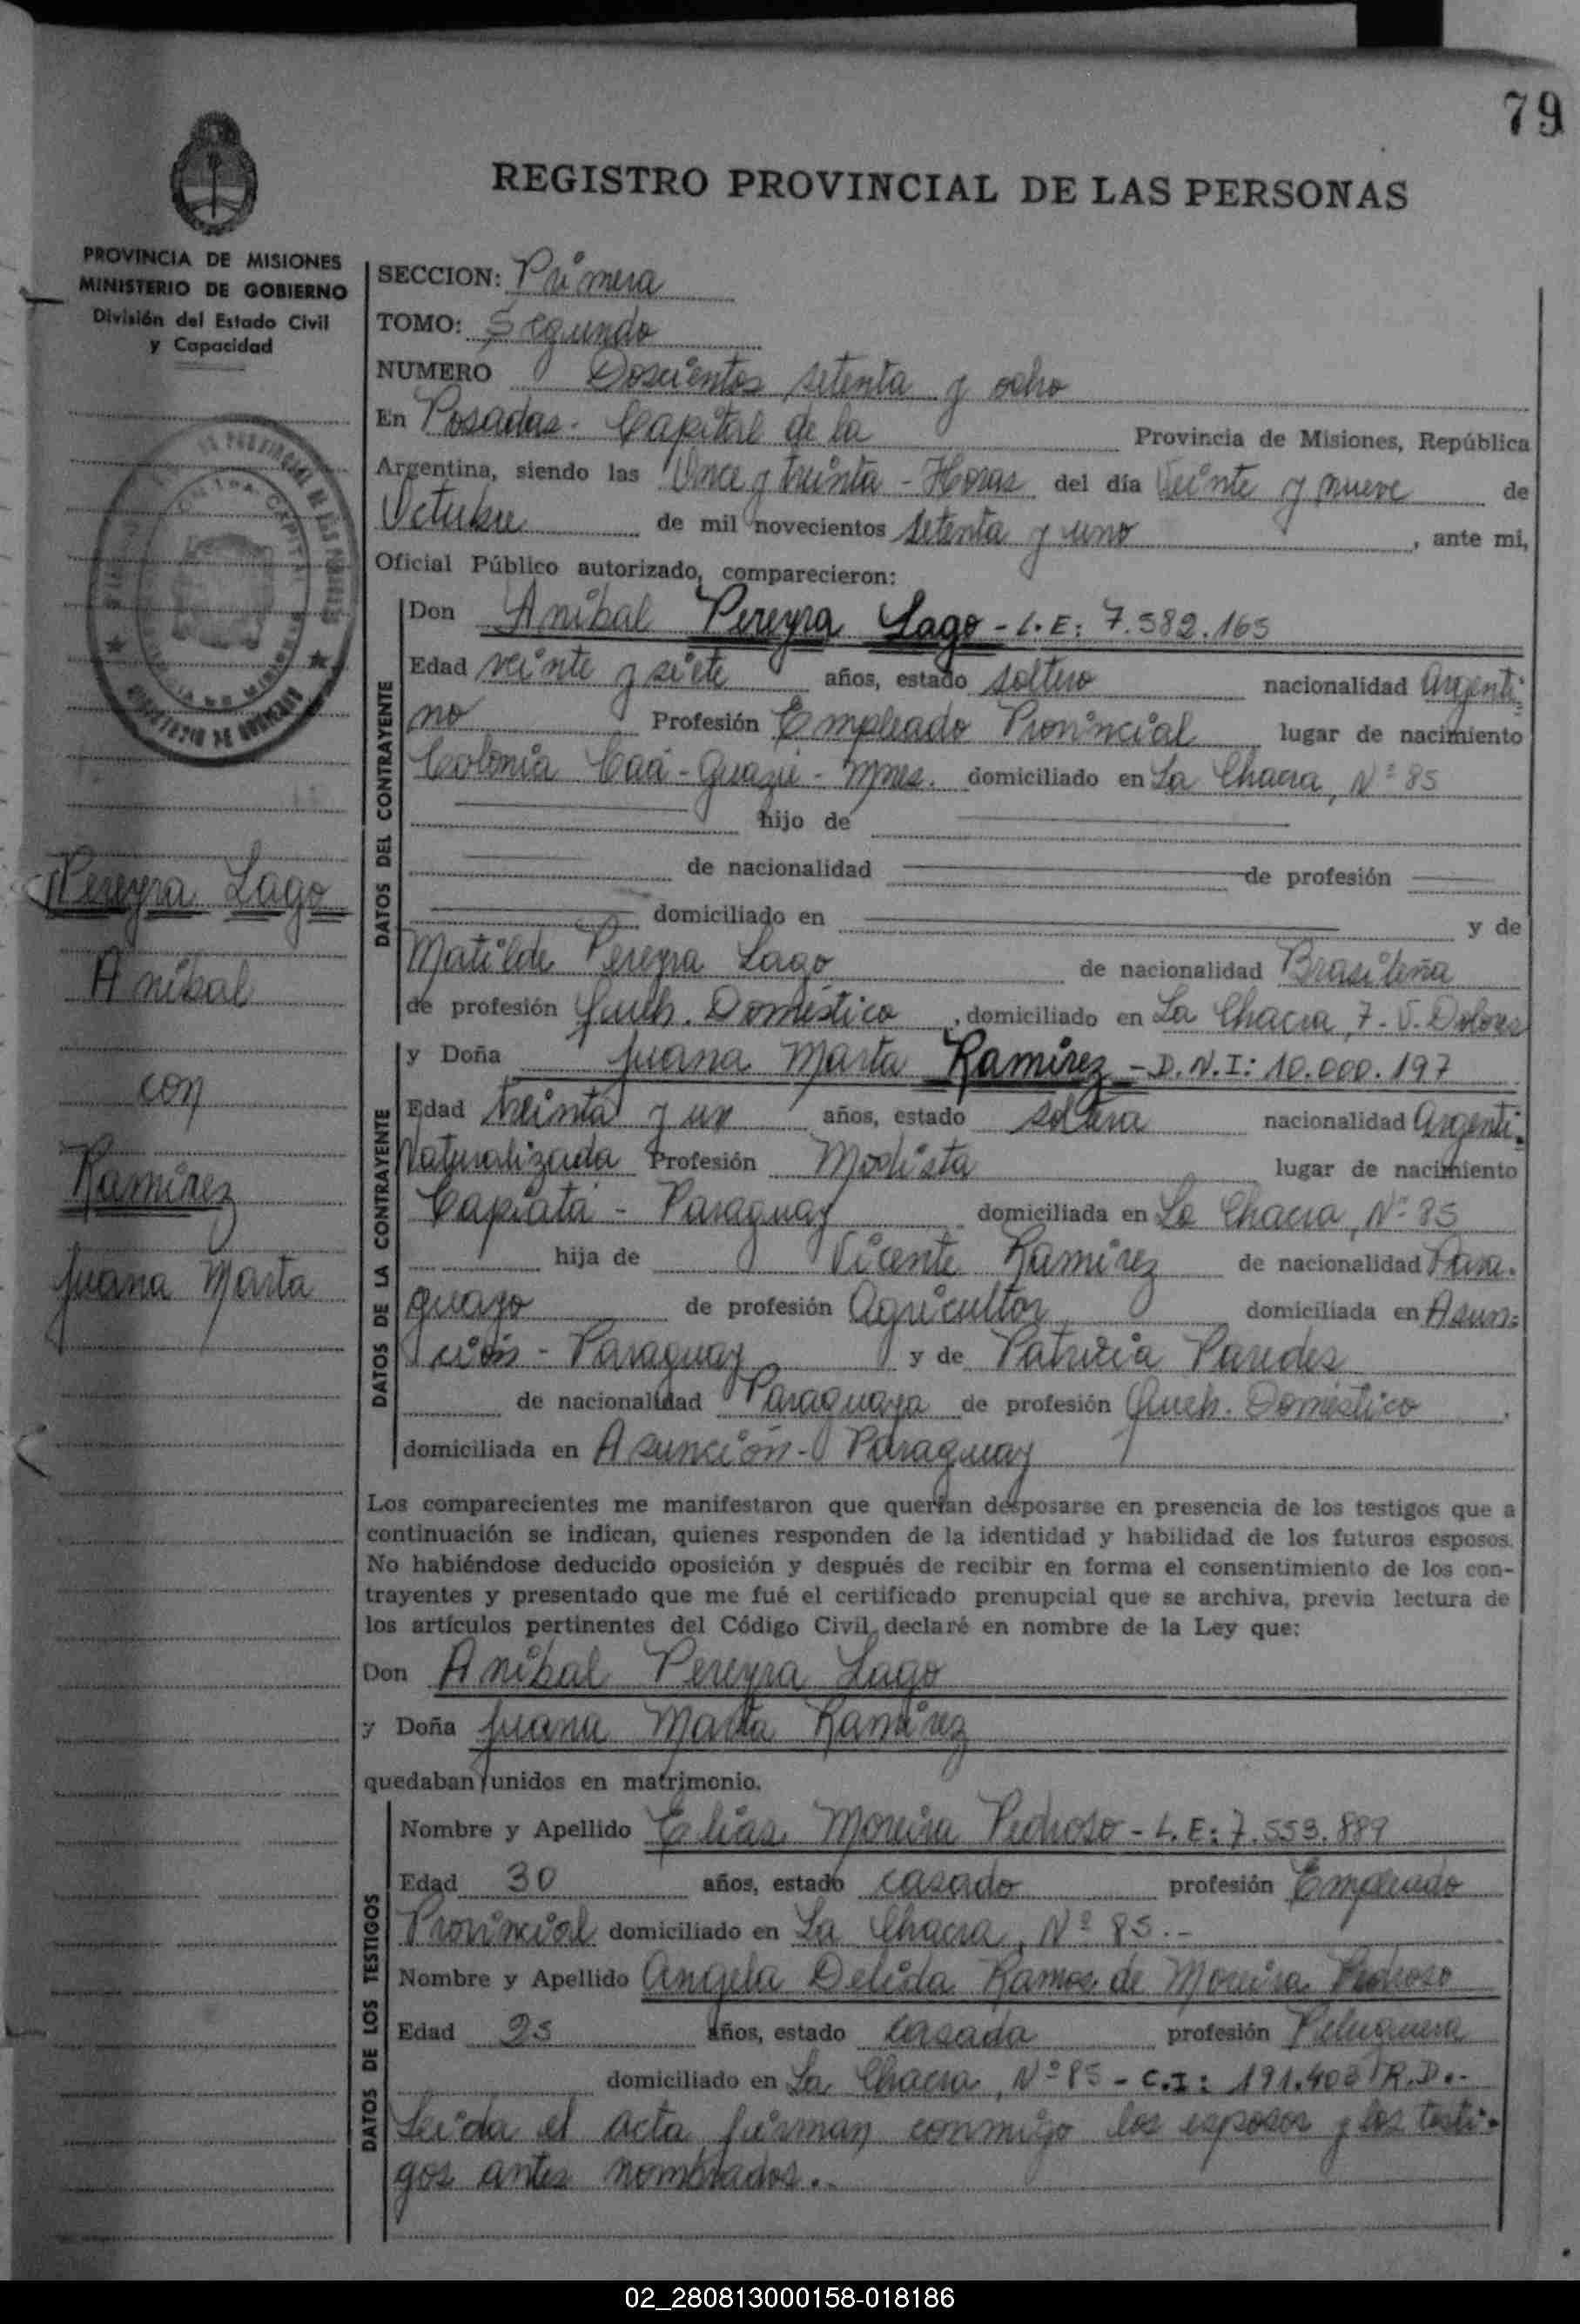 79
REGISTRO PROVINCIAL DE LAS PERSONAS
PROVINCIA DE MISIONES
MINISTERIO DE GOBIERNO
División del Estado Civil
y Capacidad
SECCION: Primera
TOMO: Segundo
NUMERO Doscientos setenta y ocho
En Posadas. Capital de la Provincia de Misiones, República
Argentina, siendo las Once y treinta - Horas del día Veinte y nueve de
Octubre de mil novecientos setenta y uno, ante mi,
Oficial Público autorizado, comparecieron:
DATOS DEL CONTRAYENTE
Don Anibal Pereyra Lago - L.E: 7.582.165
Edad veinte y siete años, estado soltero nacionalidad Argenti-
no Profesión Empleado Provincial lugar de nacimiento
Colonia Caá-Guazú - Mnes. domiciliado en La Chacra, Nº 85
hijo de
de nacionalidad de profesión
domiciliado en y de
Matilde Pereyra Lago de nacionalidad Brasileña
de profesión Queh. Doméstico, domiciliado en La Chacra, 7-V. Dolores
Pereyra Lago
Anibal
con
Ramirez
Juana Marta
DATOS DE LA CONTRAYENTE
y Doña Juana Marta Ramirez - D.N.I: 10.000.197
Edad treinta y un años, estado soltera nacionalidad Argenti-
Naturalizada Profesión Modista lugar de nacimiento
Capiatá - Paraguay domiciliada en La Chacra, Nº 85
hija de Vicente Ramirez de nacionalidad Para-
guayo de profesión Agricultor domiciliada en Asun-
ción - Paraguay y de Patricia Paredes
de nacionalidad Paraguaya de profesión Queh. Doméstico,
domiciliada en Asunción - Paraguay
Los comparecientes me manifestaron que querían desposarse en presencia de los testigos que a
continuación se indican, quienes responden de la identidad y habilidad de los futuros esposos.
No habiéndose deducido oposición y después de recibir en forma el consentimiento de los con-
trayentes y presentado que me fué el certificado prenupcial que se archiva, previa lectura de
los artículos pertinentes del Código Civil, declaré en nombre de la Ley que:
Don Anibal Pereyra Lago
y Doña Juana Marta Ramirez
quedaban unidos en matrimonio.
DATOS DE LOS TESTIGOS
Nombre y Apellido Elias Moreira Pedroso - L.E: 7.553.889
Edad 30 años, estado casado profesión Empleado
Provincial domiciliado en La Chacra, Nº 85.-
Nombre y Apellido Angela Delida Ramos de Moreira Pedroso
Edad 25 años, estado casada profesión Peluquera
domiciliado en La Chacra, Nº 85 - C.I: 191.403 R.D.-
Leida el acta, firman conmigo los esposos y los testi-
gos antes nombrados.
02_280813000158-018186